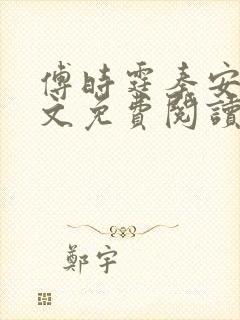 傅時霆秦安
文免費閱讀
鄭宇